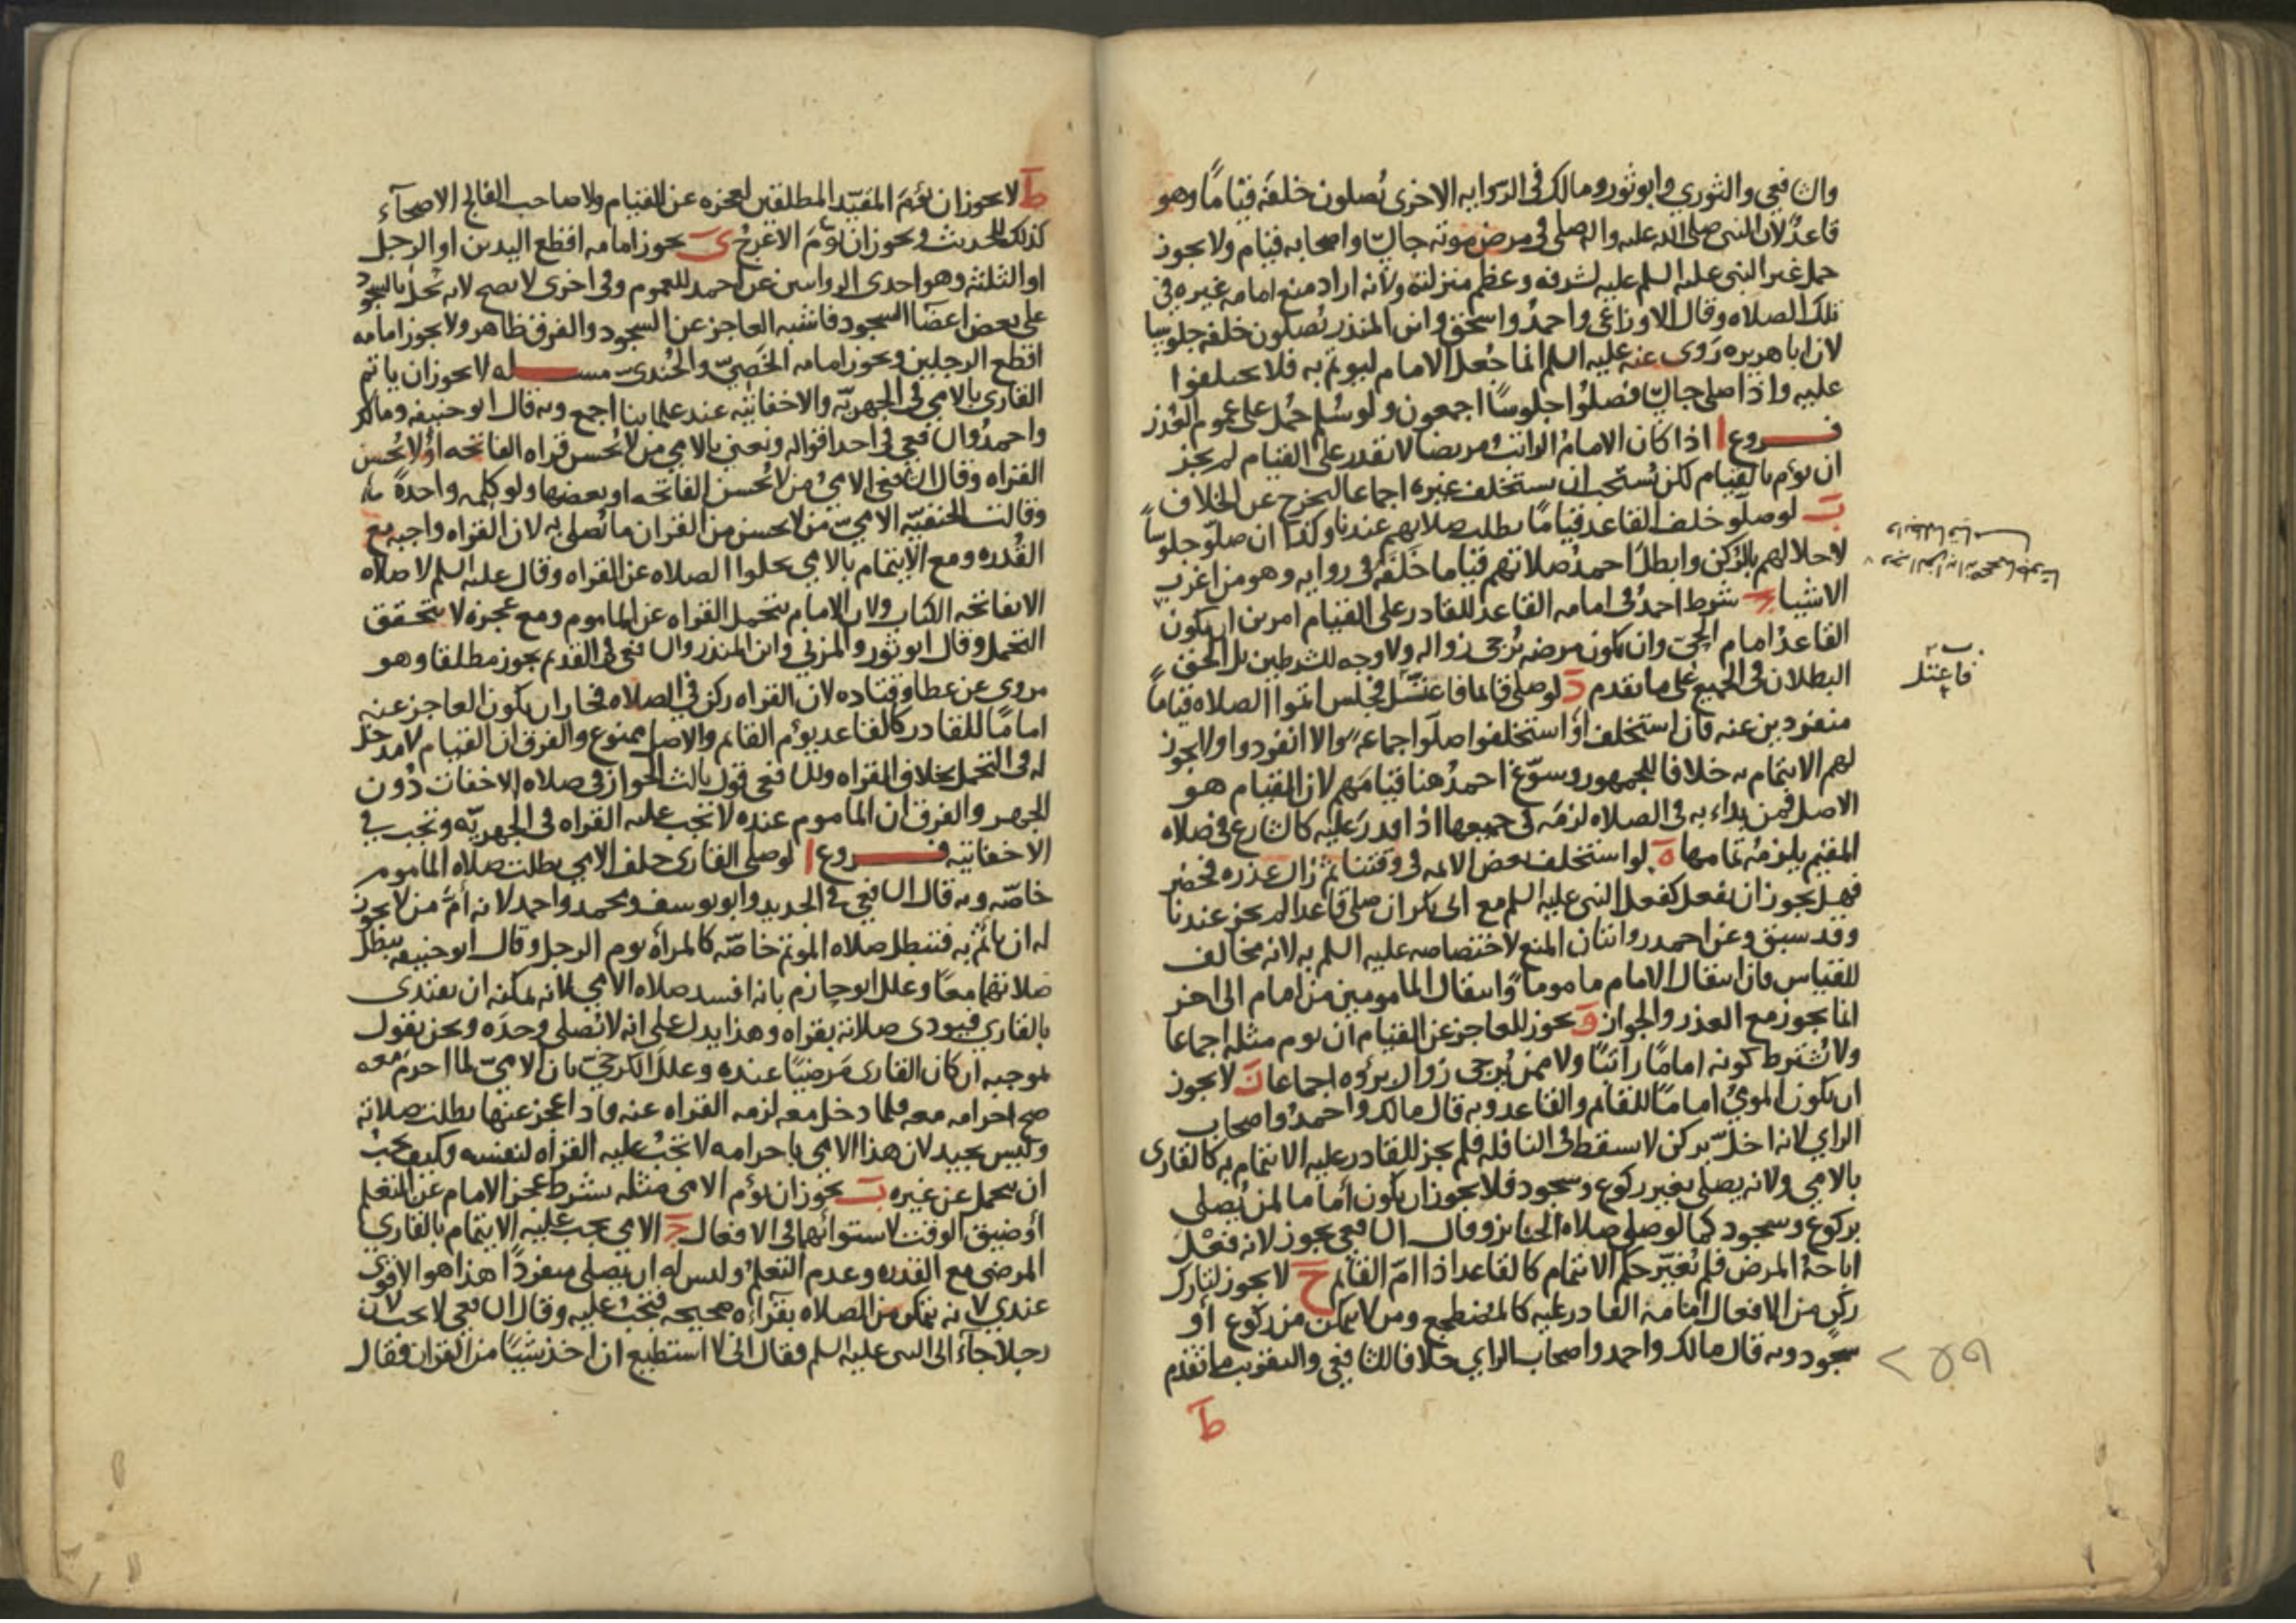 والشافعي والثوري وابو ثور ومالك في الرواية الاخرى يُصلون خلفه قيامًا وهو
قاعدٌ لان النبي صلى الله عليه واله صلى في مرض موته جالسا واصحابه قيام ولا يجوز
حمل غير النبي عليه السلم عليه لشرفه وعظم منزلته ولانه اراد منع امامه غيره في
تلك الصلاه وقال الاوزاعي واحمدُ واسحق وابن المنذر يُصلون خلفه جلوسا
لان ابا هريره رَوى عنه عليه السلم انما جُعل الامام ليوتم به فلا تختلفوا
عليه واذا صلى جالسا فصلُّوا جلوسًا اجمعون ولو سُلم حُمل على عموم العُذر
فروع ا اذا كان الامامُ الراتبُ مريضا لا يقدر على القيام لم يجز
ان يؤم بالقيام لكن يُستحب ان يستخلف غيره اجماعا ليخرج عن الخلاف
ب لو صلّو خلف القاعد قيامًا بطلت صلاتهم عندنا وكذا ان صلّو جلوسًا
لاخلالهم بالركن وابطلَ احمدُ صلاتهم قياما خَلفَه في روايه وهو من اغرب
الاشياء ج شرط احمدُ في امامه القاعد للقادر على القيام امرين ان يكون
القاعدُ امام الحي وان يكون مرضه يُرجى زواله ولا وجه للشرطين بل الحق
البطلان في الجميع على ما تقدم د لو صلى قائما فاعتلّ فجلس اتموا الصلاه قيامًا
منفردين عنه فان استخلف او استخلفوا صلّوا جماعه والا انفردوا ولا يجوز
لهم الايتمام به خلافا للجمهور وسوّغ احمدُ هنا قيامَهم لان القيام هو
الاصل فمن بداء به في الصلاه لزمَه في جميعها اذا قدرَ عليه كالشارع في صلاه
المقيم يلزمُه تمامها ه لو استخلف بعض الائمه في وقتنا ثم زال عذره فحضر
فهل يجوز ان يفعل كفعل النبي عليه السلم مع ابي بكر ان صلى قاعدا لم يجز عندنا
وقد سبق وعن احمد روايتان المنع لاختصاصه عليه السلم به لانه مخالف
للقياس فان انتقال الامام ماموماً وانتقال المامومين من امام الى اخر
انما يجوز مع العذر والجواز و يجوز للعاجز عن القيام ان يوم مثله اجماعا
ولا يُشترط كونه امامًا راتبًا ولا ممن يُرجى زوال برؤه اجماعا ز لا يجوز
ان يكون المومئُ امامًا للقائم والقاعد وبه قال مالك واحمدُ واصحاب
الراي لانه اخلّ بركن لا يسقط في النافله فلم يجز للقادر عليه الايتمام به كالقارى
بالامي ولانه يصلى بغير ركوع وسجود فلا يجوز ان يكون أماما لمن يُصلى
بركوع وسجود كما لو صلى صلاه الجنايز وقال الشافعي يجوز لانه فعْلٌ
اباحهُ المرض فلم يُغيّر حكم الائتمام كالقاعد اذا امّ القائم ح لا يجوز لتارك
ركن من الافعال امامه القادر عليه كالمضطجع ومن لا يتمكن من ركوع أو
سجود وبه قال مالك واحمد واصحاب الراي خلافا للشافعي والتقريب ما تقدم
ط
فاعتل
٢٥٩
ط لا يجوز ان يؤمَ المقيّد المطلقين لعجزه عن القيام ولا صاحب الفالج الاصحآء
كذلك للحديث ويجوز ان يؤمَ الاعرجُ ى يجوز امامه اقطع اليدين او الرجل
او الثلثه وهو احدى الروايتين عن احمد للعموم وفى اخرى لا يصح لانه يُخلّ بالسجود
على بعض اعضا السجود فاشبه العاجز عن السجود والفرق ظاهر ولا يجوز امامه
اقطع الرجلين ويجوز امامه الخَصِيّ والجُندىّ مسله لا يجوز ان ياتم
القارى بالامي في الجهريّه والاخفاتيّه عند علمائنا اجمع وبه قال ابو حنيفه ومالك
واحمدُ والشافعي في احد اقواله ونعني بالامي من لا يُحسن قراه الفاتحه اوْ لا يُحسن
القراه وقال الشافعي الاميُ من لا يُحسن الفاتحه او بعضها ولو كلمه واحدةً
وقالت الحنفيّه الاميّ من لا يحسن من القران ما يُصلي به لان القراه واجبه مع
القُدره ومع الايتمام بالامي يخلوا الصلاه عن القراه وقال عليه السلم لا صلاه
الا بفاتحه الكتاب ولان الامام يتحمل القراه عن الماموم ومع عجزه لا يتحقق
التحمل وقال ابو ثور والمزني وابن المنذر والشافعي في القديم يجوز مطلقا وهو
مروى عن عطا وقتاده لان القراه ركن في الصلاه فجاز ان يكون العاجز عنه
امامًا للقادر كالقاعد يؤم القائم والاصل ممنوع والفرق ان القيام لا مدخل
له فى التحمل بخلاف القراه وللشافعي قول ثالث الجواز في صلاه الاخفات دُون
الجهر والفرق ان الماموم عنده لا تجب عليه القراه في الجهريّه وتجب في
الاخفاتيه فروع ا لو صلى القارى خلف الامي بطلت صلاه الماموم
خاصّه وبه قال الشافعي في الجديد وابو يوسف ومحمد واحمد لانه أمَّ من لا يجوز
له ان يأتمَّ به فتبطل صلاه المؤتم خاصّه كالمرأه يوم الرجل وقال ابو حنيفه تبطل
صلاتهما معًا وعلل ابو حازم بانه افسد صلاه الامي لانه يمكنه ان يقتدى
بالقارى فيودى صلاته بقراه وهذا يدل على انه لا يُصلي وحدَه ونحن نقول
بموجبه ان كان القارى مَرضيًا عنده وعللَ الكرخيّ بان الاميّ لما احرمَ معه
صح احرامه معه فلما دخل معه لزمه القراه عنه فاذا عجز عنها بطلت صلاته
وليس بجيد لان هذا الامي باحرامه لا تجبُ عليه القراه لنفسه وكيف يجبُ
ان يتحمل عن غيره ب يجوز ان يؤم الامى مثله بشرط عجز الامام عن التعلم
أو ضيق الوقت لاستوائهما في الافعال ج الامي يجب عليه الايتمام بالقاري
المرضي مع القدره وعدم التعلم وليس له ان يصلى منفردًا هذا هو الاقوى
عندي لانه يتمكن من الصلاه بقرآءه صحيحه فتجبُ عليه وقال الشافعي لا يجب لان
رجلا جآءَ الى النبي عليه السلم فقال انى لا استطيع ان اخذ شيئًا من القران فقال